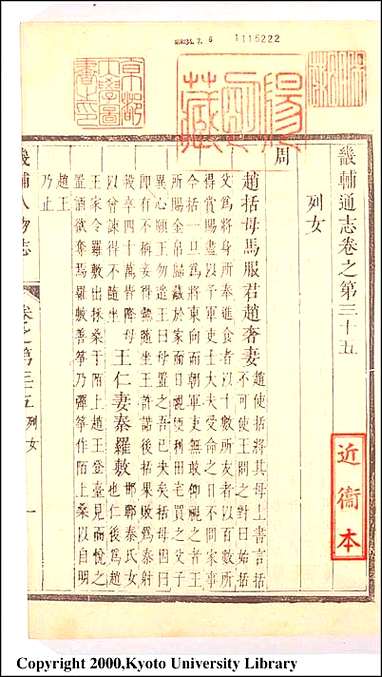 1116222
京都
大學圖
書之印
畿輔通志卷之第三十五
列女
周
趙括母馬服君趙奢妻
趙使括將其母上書言括
不可使王問之對曰始括
父爲將身所奉進食者以十數所友者以百數所
得賞賜盡以予軍吏士大夫受命之日不問家事
今括一旦爲將東向而朝軍吏無敢仰視之者王
所賜金帛歸藏於家而日視便利田宅買之父子
異心願王勿遣王曰母置之吾已決矣括母因曰
即有不稱妾得無隨坐王許諾後括果敗爲秦射
殺卒四十萬皆降母
以嘗諫得不隨坐
王仁妻秦羅敷
邯鄲秦氏女
也仁後爲趙
王家令羅敷出採桑于陌上趙王登臺見而悅之
置酒欲奪焉羅敷善箏乃彈箏作陌上桑以自明
趙王
乃止
畿輔人物志
卷之第三十五
列女
一
近衞本
Copyright 2000,Kyoto University Library